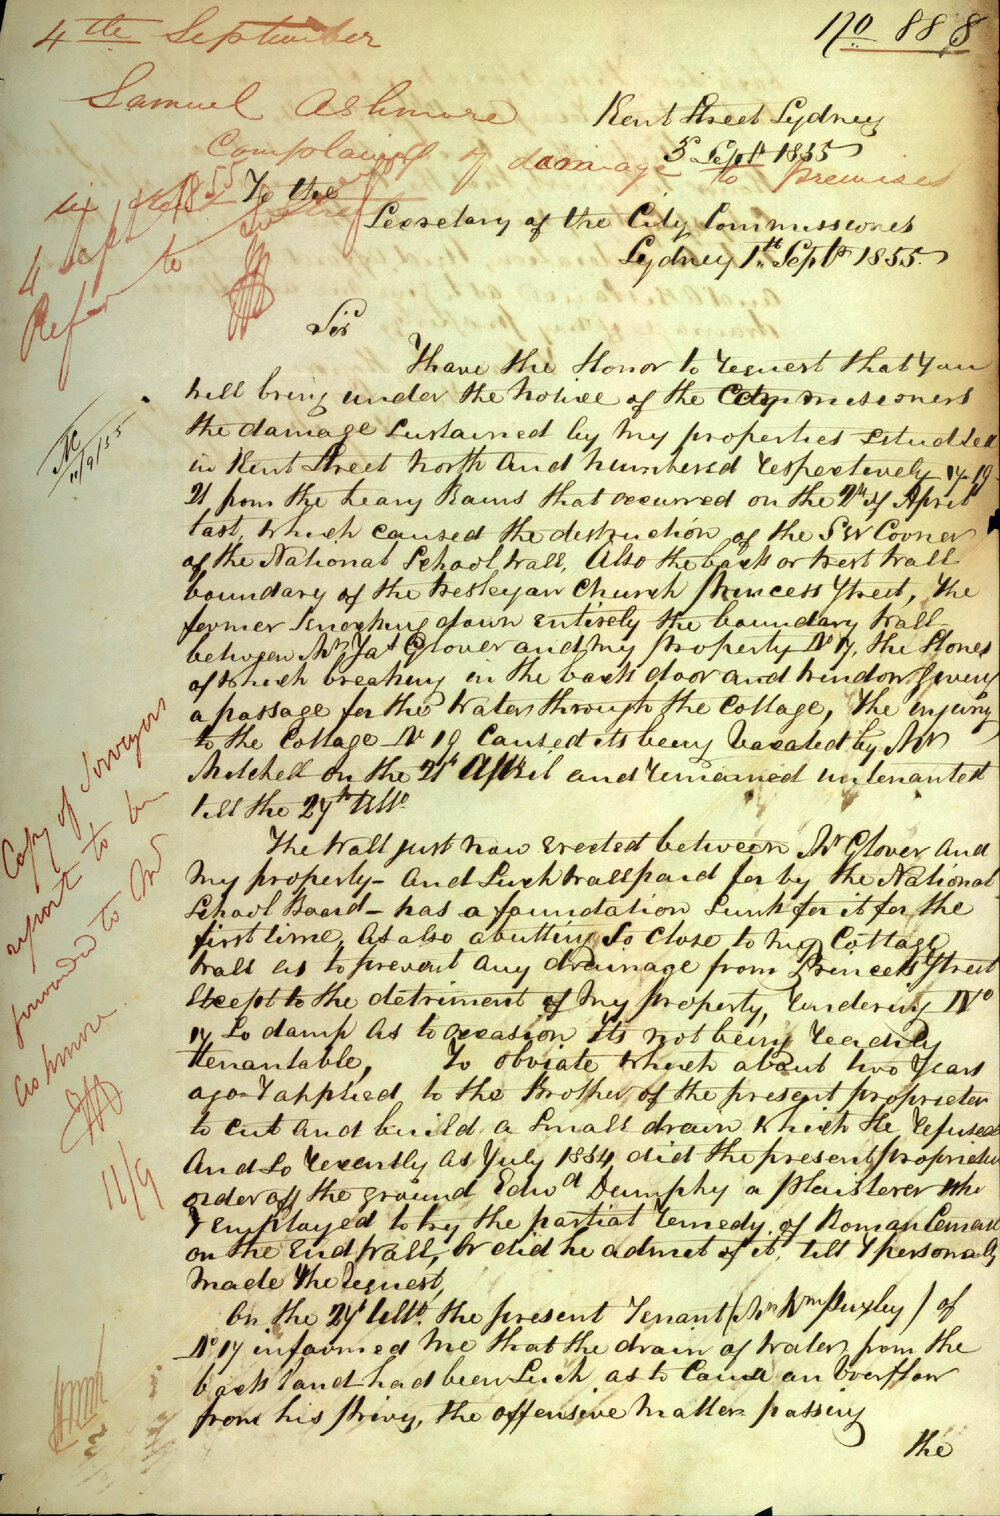 4th September
No 888
Samuel Ashmore
Kent Street Sydney
Complaining of damage to premises
3 Sept 1855
To the
Secretary of the City Commissioners
Sydney 1st Septr 1855
4 Sept 1855
Refer to
Sir
I have the Honor to request that you
will bring under the notice of the Commissioners
the damage sustained by my properties situated
in Kent Street North and numbered respectively 17.19.
21 from the heavy Rains that occurred on the of April
last, which caused the destruction of the SW Corner
of the National School wall, Also the back or West wall
boundary of the Wesleyan Church Princess Street, the
former knocking down entirely the boundary wall
between Mr Jas Glover and my property No 17, the Stones
of which breaking in the back door and window giving
a passage for the water through the Cottage, The injury
to the Cottage No 19 Caused its being Vacated by Mr
Mitchell on the 21st April and remained untenanted
till the 27th Ullto
The wall just now erected between Mr Glover and
my property - and Such wall paid for by the National
School Board - has a foundation Sunk for it for the
first time, as also abutting So close to my Cottage
wall as to prevent any drainage from Princess Street
Except to the detriment of my property, rendering No
17 So damp as to occasion its not being readily
tenantable, To obviate which about two years
ago I applied to the Brother of the present proprietor
to cut and build a Small drain which He refused
And So recently as July 1854 did the present proprietor
order off the ground Edwd Dumphy a plaisterer who
I employed to try the partial remedy of Roman Cement
on the End Wall, Or did he admit of it, till I personally
made the request,
On the 27 Ullto. the present Tenant (Mr Wm Puxley) of
No 17 informed me that the drain of water from the
back land had been Such as to Cause an Overflow
from his Privy, the offensive matter passing
the
11/9/55
Copy of Surveyors
report to be
forwarded to Mr
Ashmore
11/9